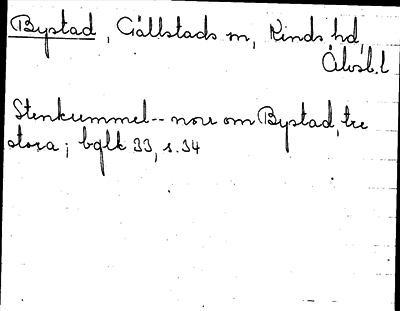 Bystad, Gällstads sn, Kinds hd,
Älvsb. l
Stenkummel -- norr om Bystad, tre
stora; bglk 33, s. 34